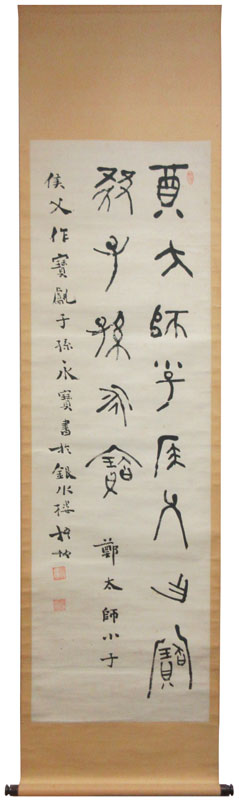 奠大師小子侯父乍寶
獻子孫永寶 鄭太師小子
侯父作寶甗子孫永寶書於銀水樓